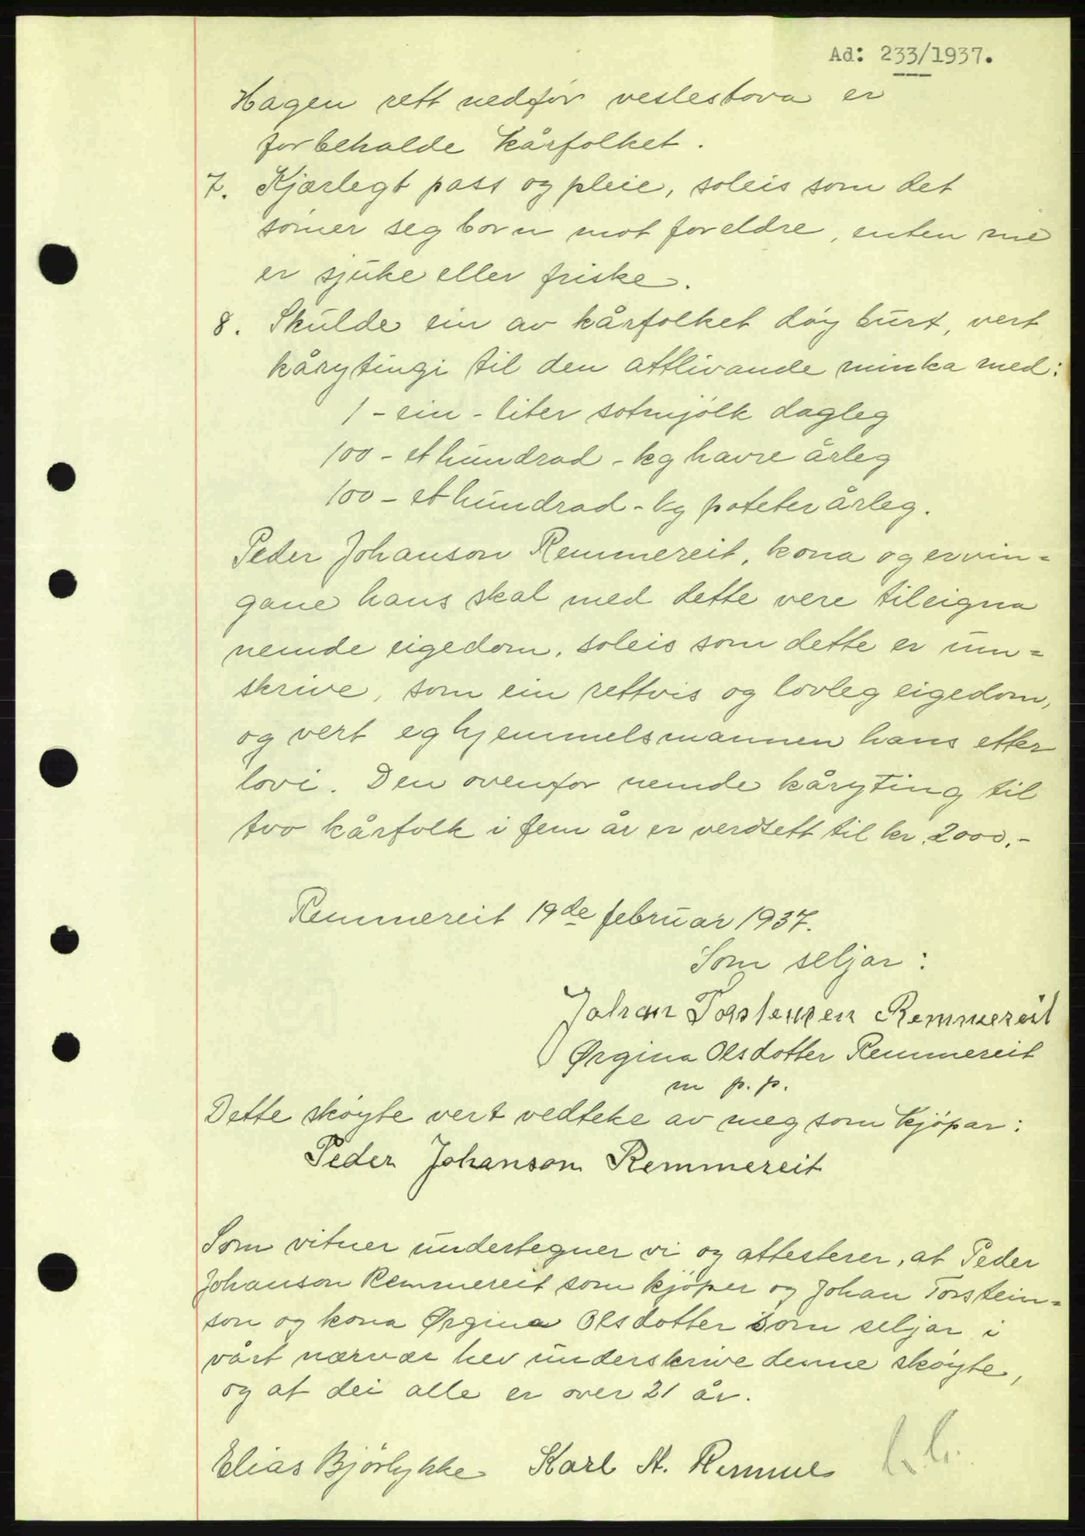 Ad: 233/1937.
Hagen rett nedfor veslestova er
forbehalde kårfolket.
7. Kjærlegt pass og pleie, soleis som det
sømer seg born mot foreldre, enten me
er sjuke eller friske.
8. Skulde ein av kårfolket døy burt, vert
kårytingi til den attlivande minka med:
1 - ein - liter søtmjølk dagleg
100 - et hundrad - kg havre årleg
100 - et hundrad - kg poteter årleg.
Peder Johanson Remmereit, kona og ervin=
gane hans skal med dette vere tileigna
nemde eigedom, soleis som dette er um=
skrive, som ein rettvis og lovleg eigedom,
og vert eg hjemmelsmannen hans etter
lovi. Den ovenfor nemde kåryting til
tvo kårfolk i fem år er verdsett til kr. 2000.-
Remmereit 19de februar 1937.
Som seljar:
Johan Torsteinsen Remmereit
Ørgina Olsdotter Remmereit
m p. p.
Dette skøyte vert vedteke av meg som kjøpar:
Peder Johanson Remmereit
Som vitner undertegner vi og attesterer, at Peder
Johanson Remmereit som kjøper og Johan Torstein=
son og kona Ørgina Olsdotter som seljar i
vårt nærvær hev underskrive denne skøyte,
og at dei alle er over 21 år.
Elias Bjørlykke Karl A.